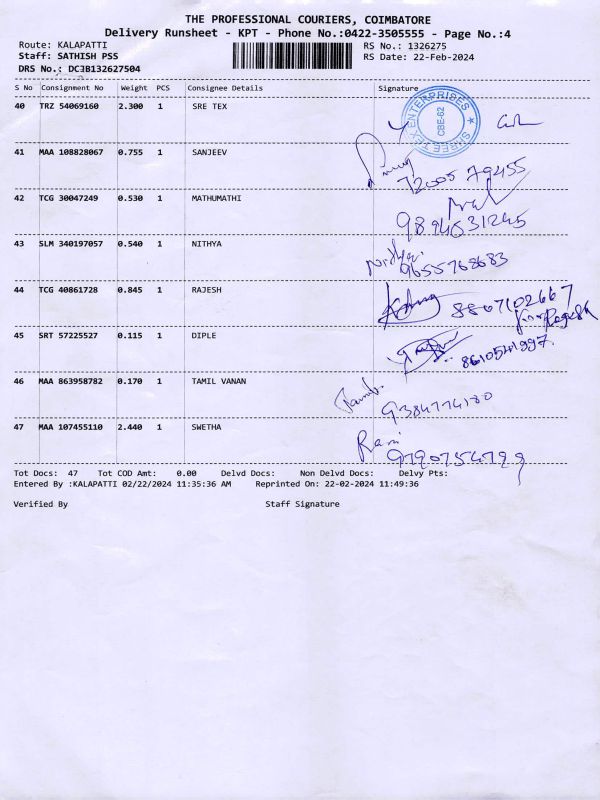 THE PROFESSIONAL COURIERS, COIMBATORE
Delivery Runsheet - KPT - Phone No.:0422-3505555 - Page No.:4
Route: KALAPATTI RS No.: 1326275
Staff: SATHISH PSS RS Date: 22-Feb-2024
DRS No.: DC3B132627504
S No Consignment No Weight PCS Consignee Details Signature
40 TRZ 54069160 2.300 1 SRE TEX
SHREE TEX ENTERPRISES CBE-62
41 MAA 108828067 0.755 1 SANJEEV
72005 79455
42 TCG 30047249 0.530 1 MATHUMATHI
9894531245
43 SLM 340197057 0.540 1 NITHYA
Nithya
9655768683
44 TCG 40861728 0.845 1 RAJESH
8807102667
45 SRT 57225527 0.115 1 DIPLE
8610541997.
46 MAA 863958782 0.170 1 TAMIL VANAN
9384774180
47 MAA 107455110 2.440 1 SWETHA
Ram
9790754799
Tot Docs: 47 Tot COD Amt: 0.00 Delvd Docs: Non Delvd Docs: Delvy Pts:
Entered By :KALAPATTI 02/22/2024 11:35:36 AM Reprinted On: 22-02-2024 11:49:36
Verified By Staff Signature